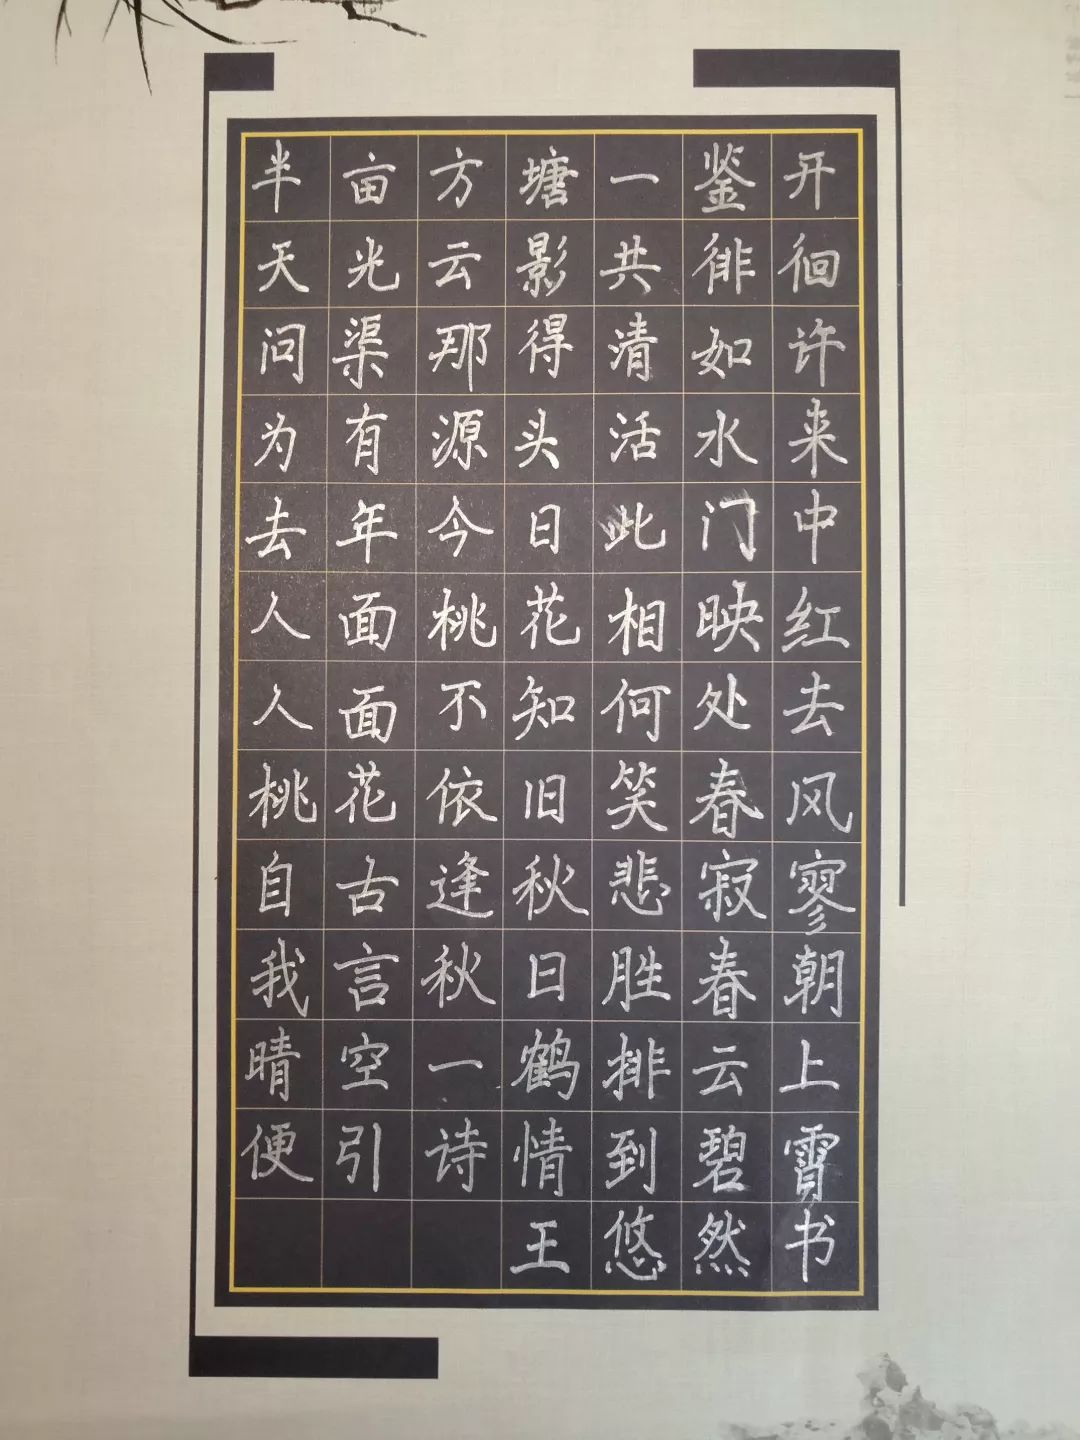 半亩方塘一鉴开
天光云影共徘徊
问渠那得清如许
为有源头活水来
去年今日此门中
人面桃花相映红
人面不知何处去
桃花依旧笑春风
自古逢秋悲寂寥
我言秋日胜春朝
晴空一鹤排云上
便引诗情到碧霄
王悠然书